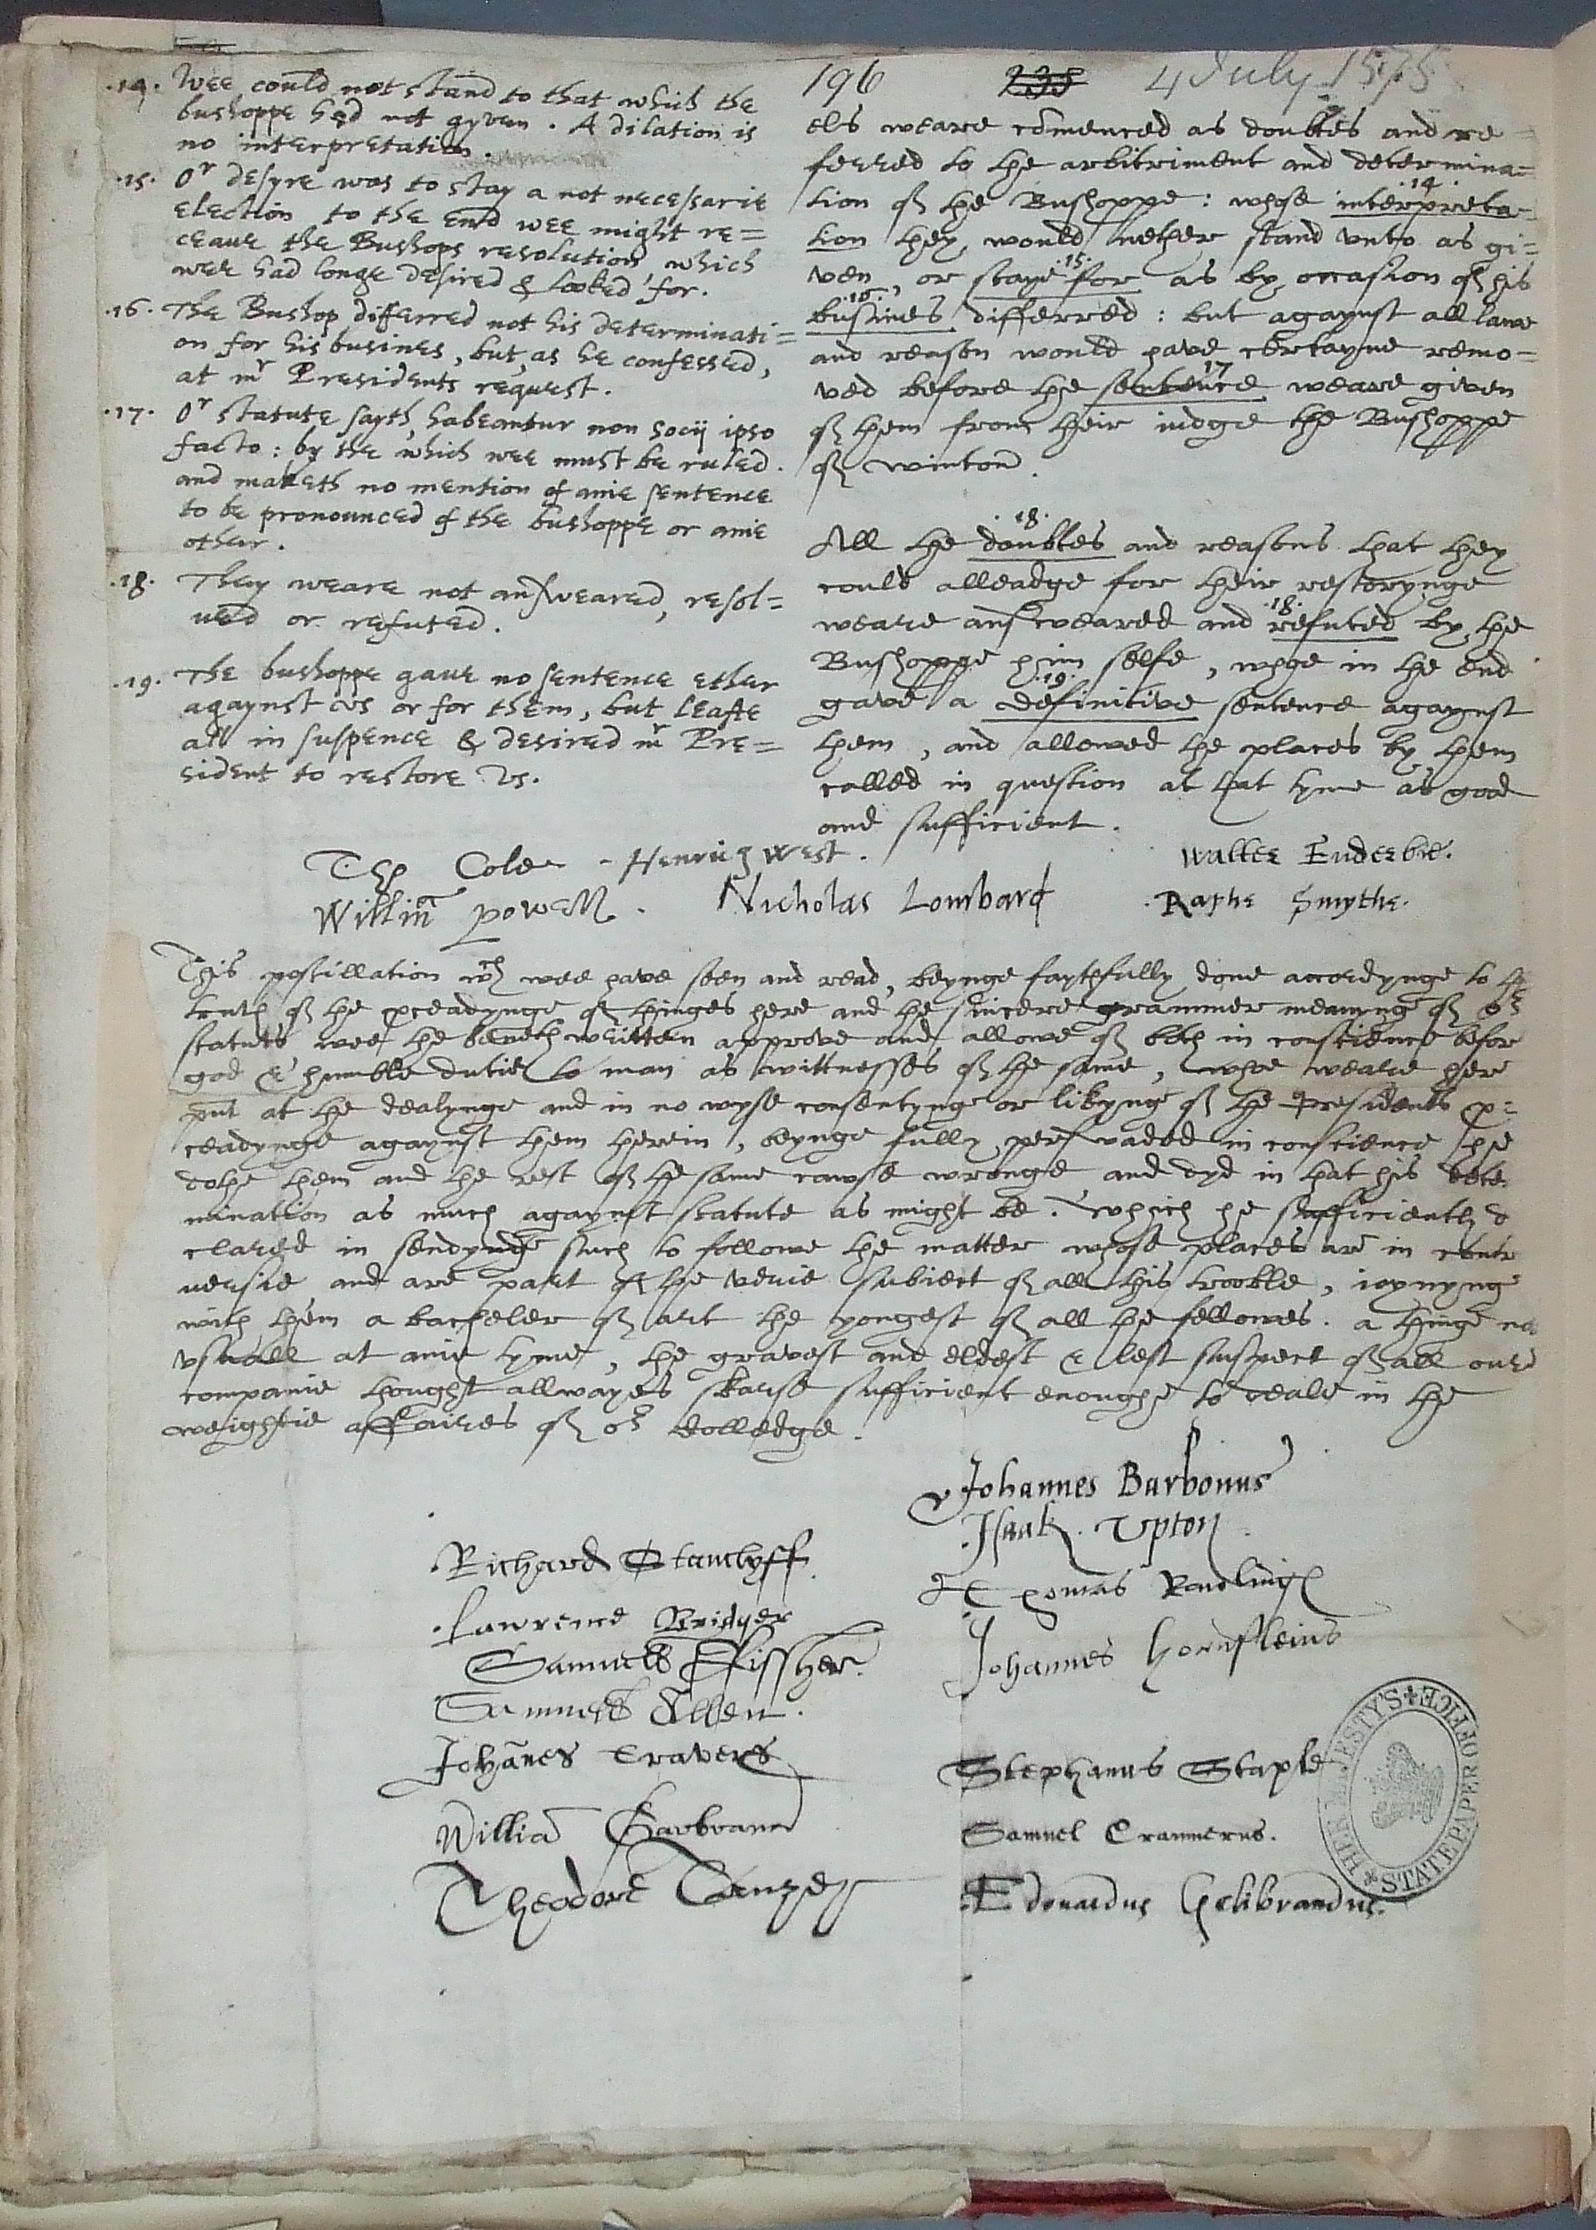 196 235 4 July 1575
.14. Wee could not stand to that which the
bushoppe had not gyven. A dilation is
no interpretation.
.15. Or desyre was to stay a not necessarie
election to the end wee might re=
ceaue the Bushops resolution, which
wee had longe desired & looked for.
.16. The Bushop differred not his determinati=
on for his busines, but, as he confessed,
at mr Presidents request.
.17. Or statute sayth, habeantur non socij ipso
facto: by the which wee must be ruled.
and maketh no mention of anie sentence
to be pronounced of the bushoppe or anie
other.
.18. They weare not answeared, resol=
ued or refuted.
.19. The bushoppe gaue no sentence ether
agaynst us or for them, but leafte
all in suspence & desired mr Pre=
sident to restore Vs.
els weare comenced as doubtes and re=
ferred to the arbitriment and determina=
tion of the Bushoppe: whose .14. interpreta=
tion they would nether stand vnto as gi=
ven, or .15. staye for as by occasion of his
.16. busines differred: but agaynst all lawe
and reason would have certayne remo=
ved before the 17 sentence weare given
of them from their iudge the Bushoppe
of Winton.
All the .18. doubtes and reasons that they
could alleadge for their restorynge
weare answeared and .18. refuted by the
Bushoppe him selfe, whoe in the end
gave a .19. definitive sentence agaynst
them, and allowed the places by them
called in question at that tyme as good
and sufficient.
Tho Cole - Henricq West. Walter Enderbie.
Willim Powell. Nicholas Lombard Raphe Smythe.
This postillation wch wee have seen and read, beynge faythfully done accordynge to the
truth of the proceadynge of thinges here and the sincere grammer meanynge of or
statuts wee the beneth written approve and allowe of both in conscience befor
god & humble dutie to man as wittnesses of the same, whoe weare here
pnt at the dealynge and in no wyse consentynge or likynge of the presidents p=
ceadynge agaynst them herein, beynge fully perswaded in conscience he
dothe them and the rest of the same cawse wronge and dyd in that his dete
mination as much agaynst statute as might be. Which he sufficiently d
clared in sendynge such to followe the matter whose places are in contr
uersie and are part of the verie subiect of all this trooble, ioynyng
with them a bacheler of art the yongest of all the fellowes. a thinge no
vsuall at anie tyme, the gravest and eldest & lest suspect of all oure
companie thought allwayes skarse sufficient enoughe to deale in the
weightie affaires of or Colledge.
Johannes Barbonus
Isaak Upton
Richard Stanclyff
Thomas Rawlings
Lawrence Bridger
Samuell Fissher.
Johannes Hornsleius
Samuell Allen.
Johanes Travers
Stephanus Staple
Willia Garbrand
Samuel Cranmerus.
Theodore
Edouardus Gelibrandus.
HER MAJESTY'S STATE PAPER OFFICE